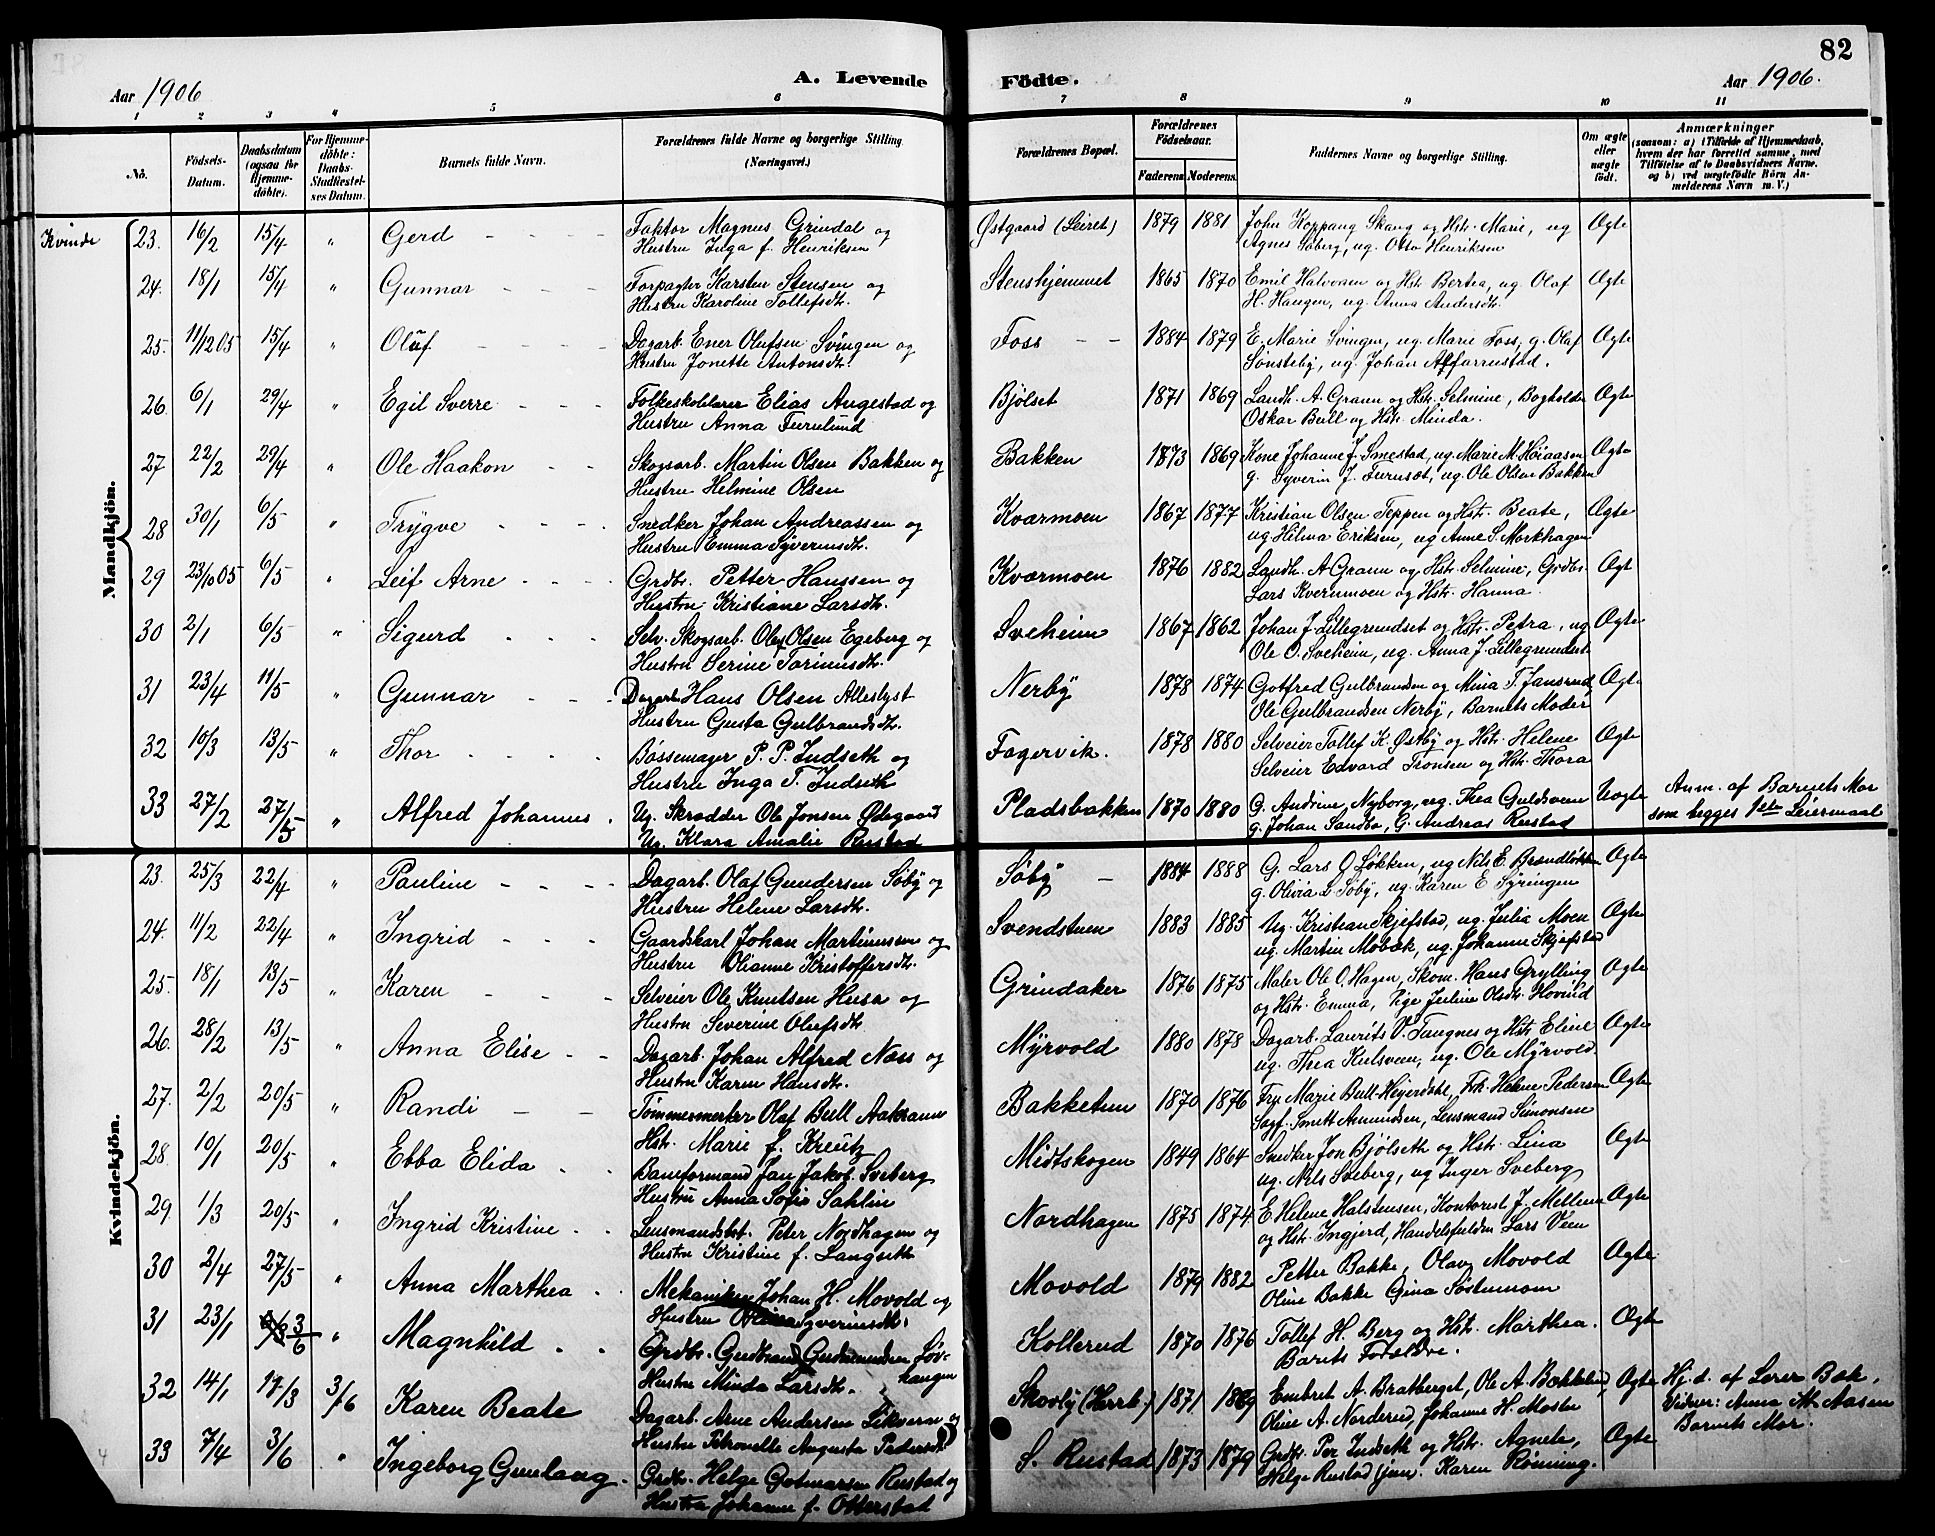 82
Aar 1906
A. Levende
Födte.
Aar 1906.
1 2 3 4 5 6 7 8 9 10 11
No.
Födsels-Datum.
Daabsdatum (ogsaa for Hjemmedöbte).
For Hjemmedöbte: Daabs-Stadfæstelses Datum.
Barnets fulde Navn.
Forældrenes fulde Navne og borgerlige Stilling (Næringsvei.)
Forældrenes Bopæl.
Forældrenes Födselsaar.
Faderens. Moderens.
Faddernes Navne og borgerlige Stilling.
Om ægte eller uægte födt.
Anmærkninger
(saasom: a) i Tilfælde af Hjemmedaab, hvem der har forrettet samme, med Tilföielse af to Daabsvidners Navne, og b) ved uægtefödte Börn Anmelderens Navn m. V.)
Kvinde
Mandkjön.
23. 16/2 15/4 " Gerd - - - - Faktor Magnus Grindal og Østgaard (Leiret) 1879 1881 John Koppang Skang og Hst. Marie, ug Ægte
Hustru Inga f. Henriksen Agnes Søberg, ug. Otto Henriksen
24. 18/1 15/4 " Gunnar - - - Forpagter Karsten Stensen og Stenshjemmet 1865 1870 Emil Halvorsen og Hst. Bertea, ug. Olaf Ægte
Hustru Karoline Tollefsdt. H. Haugen, ug. Anna Andersdt.
25. 11/12 05 15/4 " Oluf - - - - Dagarb. Ener Olufsen Svingen og Foss - - 1884 1879 E. Marie Svingen, ug. Marie Foss, g. Olaf Ægte
Hustru Jonette Antonsdt. Sønsteby, ug. Johan Affarnstad.
26. 6/1 29/4 " Egil Sverre - - - Folkeskolelærer Elias Angestad og Bjølset 1871 1869 Landh. A. Grann og Hst. Selmine, Bogholder Ægte
Hustru Anna Furulund Oskar Bull og Hst. Minda.
27 22/2 29/4 " Ole Haakon - - Skogsarb. Martin Olsen Bakken og Bakken 1873 1869 Kone Johanne J. Smestad, ug. Marie M. Høiaasen Ægte
Hustru Helmine Olsen g. Syverin J. Furuset, ug. Ole Olsen Bakken
28 30/1 6/5 " Trygve - - - - Snedker Johan Andreassen og Kværmoen 1867 1877 Kristian Olsen Teppen og Hst. Beate, Ægte
Hustru Emma Syverinsdt. ug Hilma Eriksen, ug Anne S. Morkhagen
29 23/10 05 6/5 " Leif Arne - - - - Grdbr. Petter Hanssen og Kværmoen 1876 1882 Landh. A Grann og Hst. Selmine, Grdbr. Ægt
Hustru Kristiane Larsdt. Lars Kvernmoen og Hst. Hanna.
30 2/1 6/5 " Sigurd - - - Selv. Skogsarb. Ole Olsen Egeberg og Sveheim 1867 1862 Johan J. Lillegrundset og Hst. Petra, ug Ægte
Hustru Serine Torinusdt. Ole O. Sveheim, ug. Anna J. Lillegrundset
31 23/4 11/5 " Gunnar - - - Dagarb. Hans Olsen Alleslyst Nerby 1878 1874 Gotfred Gulbrandsen og Mina T. Jansrud, Ægte
Hustru Gusta Gulbrandsdt. Ole Gulbrandsen Nerby, Barnets Moder
32 10/3 13/5 " Thor - - - - Bøssemager P. P. Indseth og Fagervik. 1878 1880 Selveier Tollef K. Østby og Hst. Helene Ægte
Hustru Inga T. Indseth Selveier Edvard Tronsen og Hst. Thora
33 27/2 27/5 " Alfred Johannes. Ug. Skrædder Ole Jonsen Ødegaard Pladsbakken 1870 1880 G. Andrine Nyborg, ug. Thea Guldsveen Uægte Anm. af Barnets Mor
Ug. Klara Amalie Rustad g. Johan Sandbo, G. Andreas Rustad som begges 1ste Leiermaal
Kvindekjön.
23. 25/3 22/4 " Pauline - - - - Dagarb. Olaf Gundersen Søby og Søby - 1884 1888 G. Lars G. Løkken, ug Nils E. Brændløkken Ægte
Hustru Helene Larsdt. g. Olivia L. Søby, ug. Karen E Syringen
24. 11/2 22/4 " Ingrid - - - Gaardskarl Johan Martinussen og Svendstuen 1883 1885 Ug. Kristian Skjefstad, ug. Julia Moen Ægte
Hustru Olianne Kristoffersdt. ug. Martin Mobæk, ug. Johanne Skjefstad
25. 18/1 13/5 " Karen - - - Selveier Ole Knutsen Husa og Grindaker 1876 1875 Maler Ole O. Hagen, Skom. Hans Grylling Ægte
Hustru Severine Olufsdt og Hst. Emma, Pige Juline Olsdt. Hovind
26. 28/2 13/5 " Anna Elise - - Dagarb. Johan Alfred Næss og Myrvold 1880 1878 Dagarb. Laurits P. Tangnes og Hst. Eline Ægte
Hustru Karen Hansdt. ug. Thea Kulsveen, ug. Ole Myrvold.
27. 2/2 20/5 " Randi - - Tømmermerker Olaf Bull Aakrann Bakketun 1870 1876 Fru Marie Bull-Heyerdahl, Frk. Helene Pedersen Ægte
Hst. Marie f. Kreutz Sagf. Smitt Amundsen, Lensmand Simonsen
28. 10/1 20/5 " Ebba Elida - - Baneformand Jan Jakob. Sveberg Midtskogen 1849 1864 Snedker Jon Bjølseth og Hst. Lina Ægte
Hustru Anna Sofia Sahlin ug. Nils Sveberg, ug Inger Sveberg
29. 1/3 20/5 " Ingrid Kristine - - Lensmandsbet. Peter Nordhagen og Nordhagen 1875 1874 E. Helene Halstensen, Kontorist J. Mellem Ægte
Hustru Kristine f. Langseth og Hst. Ingjerd, Handelsfuldm Lars Veen
30 2/4 27/5 " Anna Marthea - Mekaniker Johan H. Movold og Movold 1879 1882 Petter Bakke, Olav Movold Ægte
Hustru Syverinsdt. Oline Bakke Gina Søstumoen
31 23/1 3/6 " Magnhild - - Grdbr. Gudbrand Gudmundsen Løvhaugen Kollerud 1870 1876 Tollef H. Berg og Hst. Marthea. Ægte
Hustru Minda Larsdt. Barnets Forældre.
32 14/1 17/3 3/6 Karen Beate Dagarb. Arne Andersen Likvern og Skovly (Herrb.) 1871 1869 Embret A. Bratberget, Ole A. Bakkelund, Ægte Hj. d. af Lærer Bæk,
Hustru Petronelle Augusta Pedersdt. Oline A. Norderud, Johanne H. Moseby Vidner: Anna M. Aasen
Barnets Mor.
33 7/4 3/6 " Ingeborg Gunlaug. Grdbr. Helge Gotmarsen Rustad og S. Rustad 1873 1879 Grdbr. Per Indseth og Hst. Agnete, Ægte
Hustru Johanne f. Otterstad Helge Rustad jun. Karen Rönning.